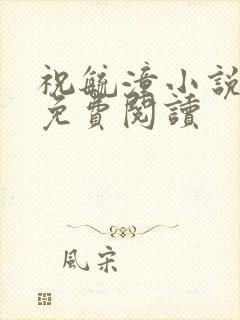 祝毓漳小説
免費閱讀
風宋